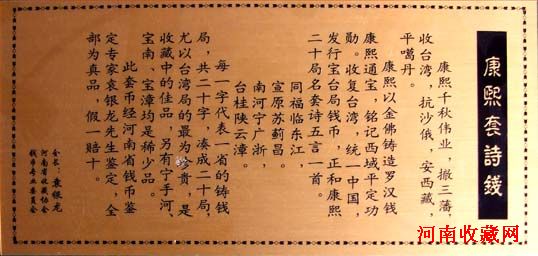 康熙套詩錢
康熙千秋伟业，撤三藩，
收台湾，抗沙俄，安西藏，
平噶丹。
康熙以金佛铸造罗汉钱
康熙通宝，铭记西域平定功
勋。收复台湾，统一中国，
发行宝台局钱币，正和康熙
二十局名套诗五言一首。
同福临东江，
宣原苏蓟昌。
南河宁广浙，
台桂陕云漳。
每一字代表一省的铸钱
局，共二十字，凑成二十局，
尤以台湾局的最为珍贵，是
收藏中的佳品，另有宁手河
宝南、宝漳均是稀少品。
此套币经河南省钱币鉴
定专家袁银龙先生鉴定，全
部为真品，假一赔十。
会长：袁银龙
河南省收藏协会
钱币专业委员会
河南收藏网